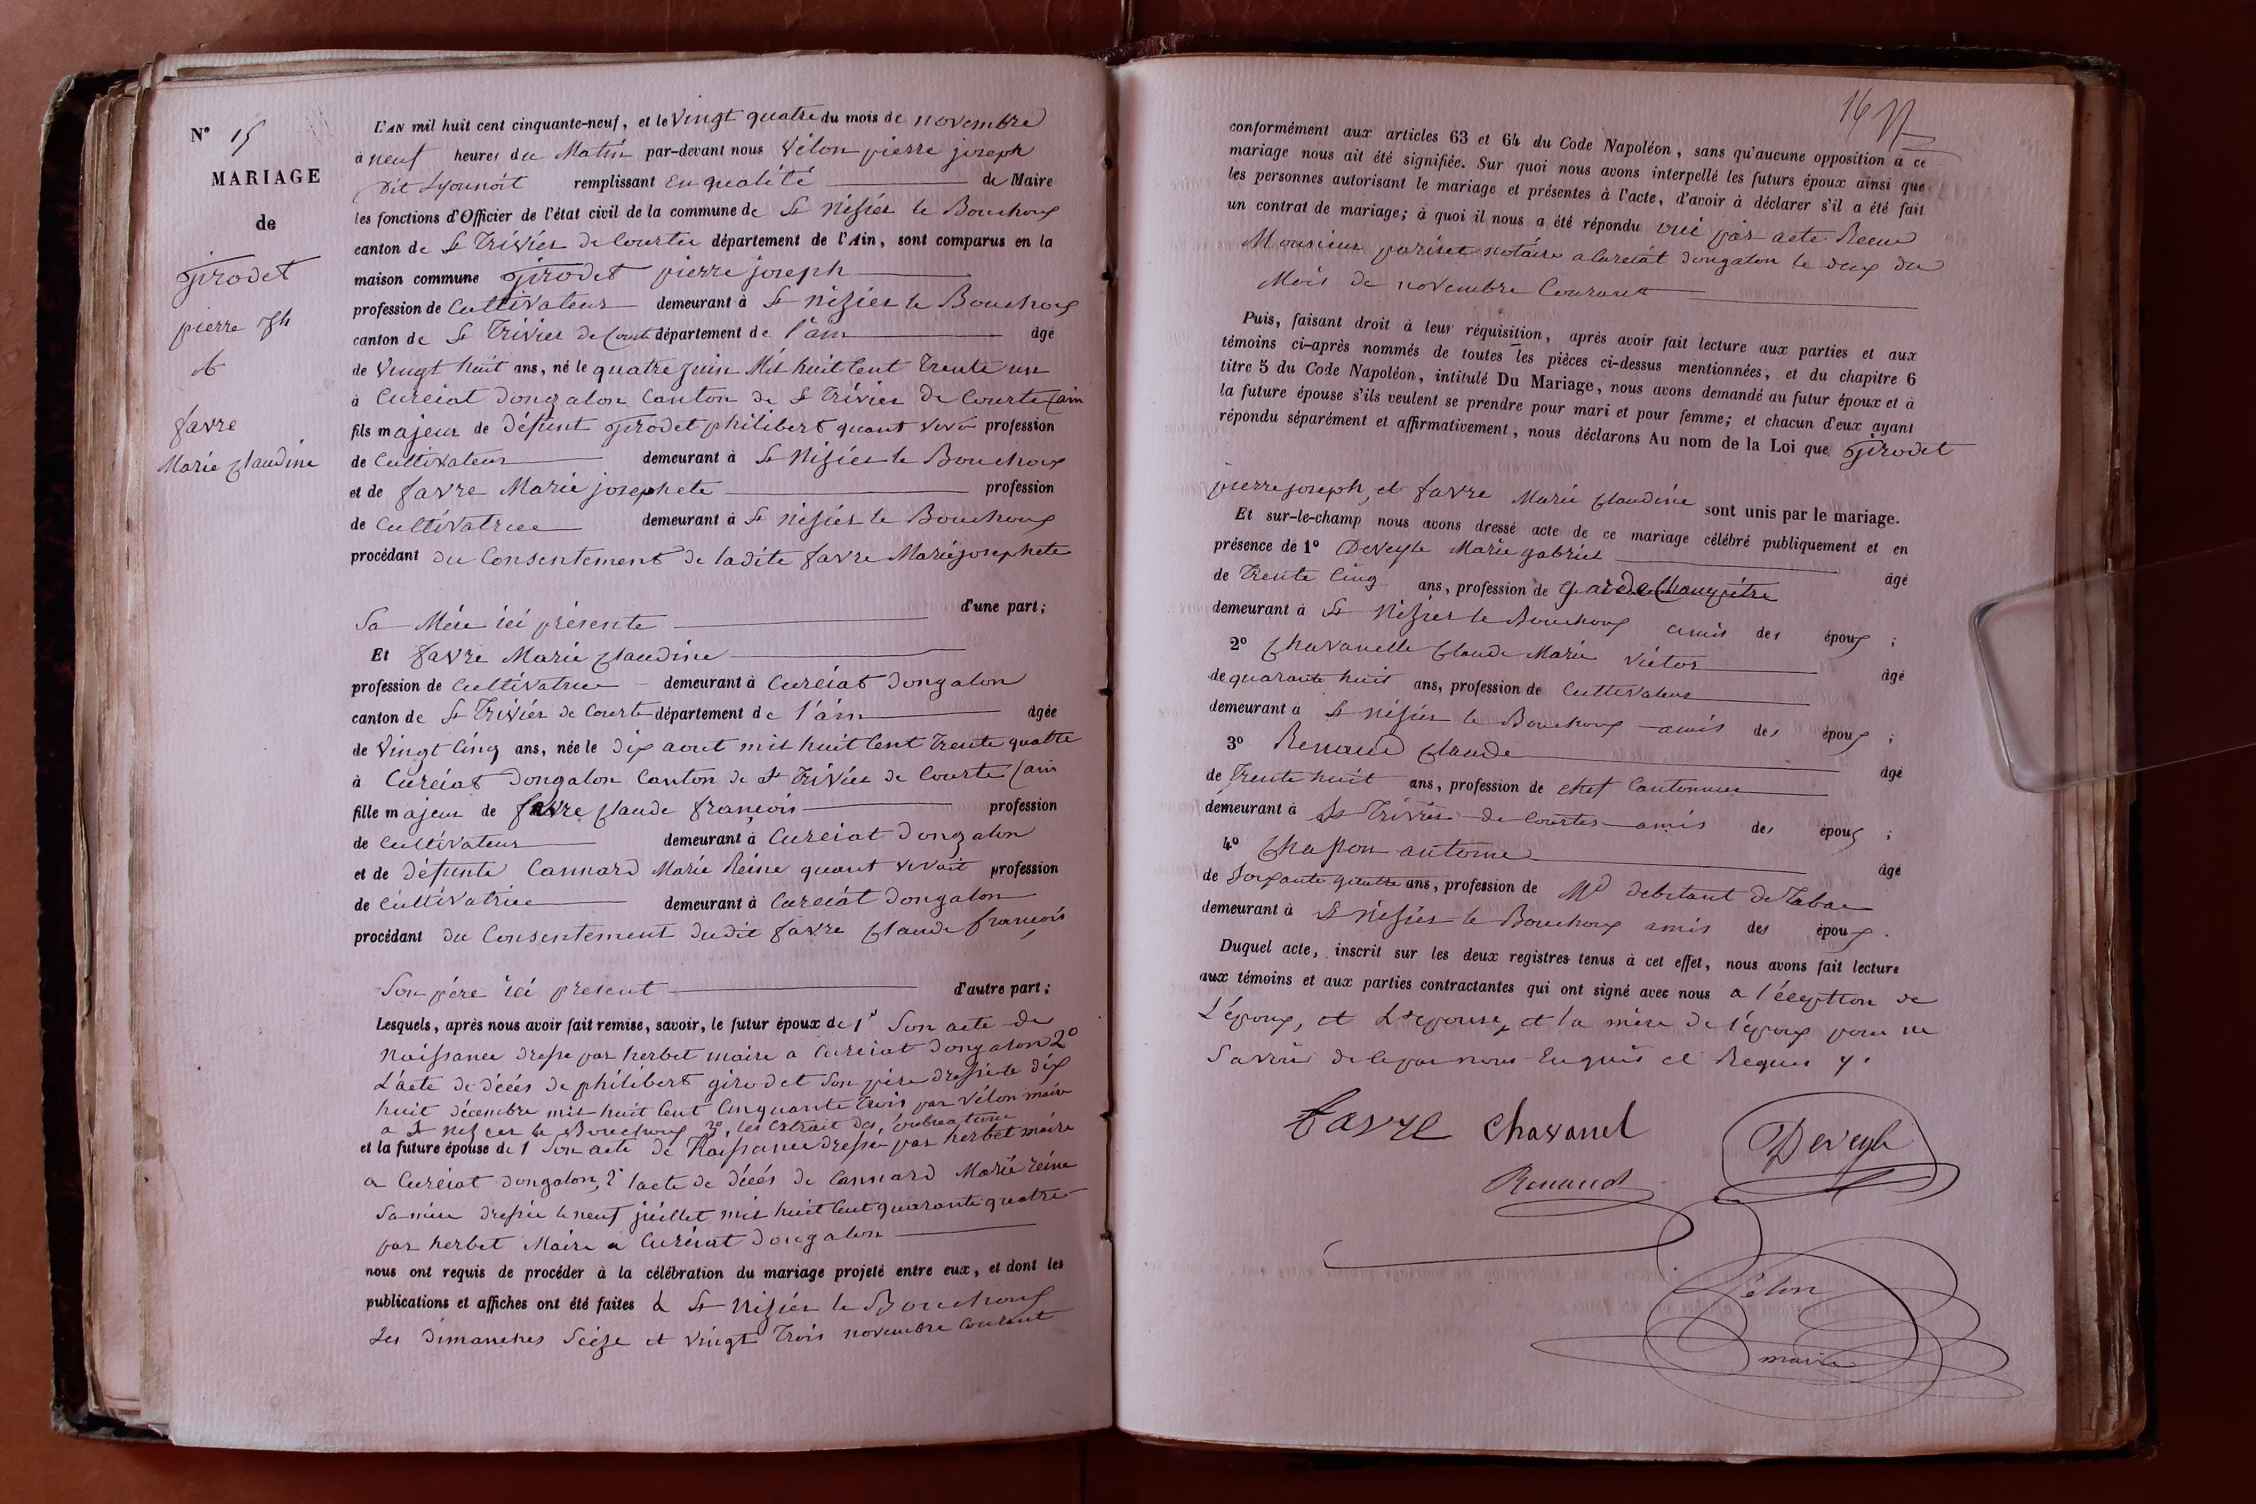 N° 15
MARIAGE
de
Girodet
pierre Jh
&
favre
Marie Claudine
L'AN mil huit cent cinquante-neuf, et le vingt quatre du mois de novembre
à neuf heures du Matin par-devant nous Vélon pierre joseph
Dit Lyounoit remplissant en qualité de Maire
les fonctions d'Officier de l'état civil de la commune de St Nisier le Bouchoux
canton de St Trivier de Courtes département de l'Ain, sont comparus en la
maison commune Girodet pierre joseph
profession de Cultivateur demeurant à St nizier le Bouchoux
canton de St Trivier de Court département de l'ain âgé
de Vingt huit ans, né le quatre juin Mil huit Cent Trente un
à Curciat Dongalon Canton de St Trivier de Courte (ain
fils majeur de défunt Girodet philibert quant vivai profession
de Cultivateur demeurant à St Nizier le Bouchoux
et de favre Marie josephete profession
de Cultivatrice demeurant à St nisier le Bouchoux
procédant du Consentement de ladite favre Marie josephete
d'une part;
Sa Mére ici présente
Et favre Marie Claudine
profession de Cultivatrice demeurant à Curciat Dongalon
canton de St Trivier de Courte département de l'ain âgée
de Vingt Cinq ans, née le dix aout mil huit Cent Trente quatre
à Curciat Dongalon Canton de St Trivier de Courte (ain
fille majeur de favre Claude françois profession
de Cultivateur demeurant à Curciat Dongalon
et de défunte Cannard Marie Reine quant vivait profession
de Cultivatrice demeurant à Curciat Dongalon
procédant du Consentement dudit favre Claude françois
Son pére ici present d'autre part;
Lesquels, après nous avoir fait remise, savoir, le futur époux de 1° Son acte de
Naissance dressé par herbet maire a Curciat Dongalon 2°
L'acte de décés de philibert girodet Son pére dressé le dix
huit décembre mil huit Cent Cinquante Trois par Vélon maire
a St nisier le Bouchoux 3°, les extrait des publications
et la future épouse de 1 Son acte de Naissance dressé par herbet maire
a Curciat Dongalon, 2° l'acte de décés de Cannard Marie reine
Sa mére dressée le neuf juillet mil huit Cent quarante quatre
par herbet Maire a Curciat Dongalon
nous ont requis de procéder à la célébration du mariage projeté entre eux, et dont les
publications et affiches ont été faites à St Nizier le Bouchoux
Les Dimanches Seize et vingt Trois novembre Courant
16
conformément aux articles 63 et 64 du Code Napoléon, sans qu'aucune opposition à ce
mariage nous ait été signifiée. Sur quoi nous avons interpellé les futurs époux ainsi que
les personnes autorisant le mariage et présentes à l'acte, d'avoir à déclarer s'il a été fait
un contrat de mariage; à quoi il nous a été répondu oui par acte Recu
Monsieur pariset notaire a Curciat Dongalon le deux du
Mois de novembre Courant
Puis, faisant droit à leur réquisition, après avoir fait lecture aux parties et aux
témoins ci-après nommés de toutes les pièces ci-dessus mentionnées, et du chapitre 6
titre 5 du Code Napoléon, intitulé Du Mariage, nous avons demandé au futur époux et à
la future épouse s'ils veulent se prendre pour mari et pour femme; et chacun d'eux ayant
répondu séparément et affirmativement, nous déclarons Au nom de la Loi que Girodet
pierre joseph, et favre Marie Claudine sont unis par le mariage.
Et sur-le-champ nous avons dressé acte de ce mariage célébré publiquement et en
présence de 1° Deveyle Marie gabriel âgé
de Trente Cinq ans, profession de garde Champétre
demeurant à St Nizier le Bouchoux amis des époux ;
2° Chavanelle Claude Marie Victor âgé
de quarante huit ans, profession de Cultivateur
demeurant à St Nisier le Bouchoux amis des époux ;
3° Renaud Claude âgé
de Trente huit ans, profession de chef Cantonnier
demeurant à St Trivier de Courtes amis des époux ;
4° Chapon antoine âgé
de Soixante quatre ans, profession de Md debitant de Tabac
demeurant à St Nisier le Bouchoux amis des époux .
Duquel acte, inscrit sur les deux registres tenus à cet effet, nous avons fait lecture
aux témoins et aux parties contractantes qui ont signé avec nous a l'éxeption de
L'époux, et L'épouse, et la mére de l'époux pour ne
Savoir de ce par nous Enquis et Requis
favre Chavanel Deveyle
Renaud
Vélon
maire